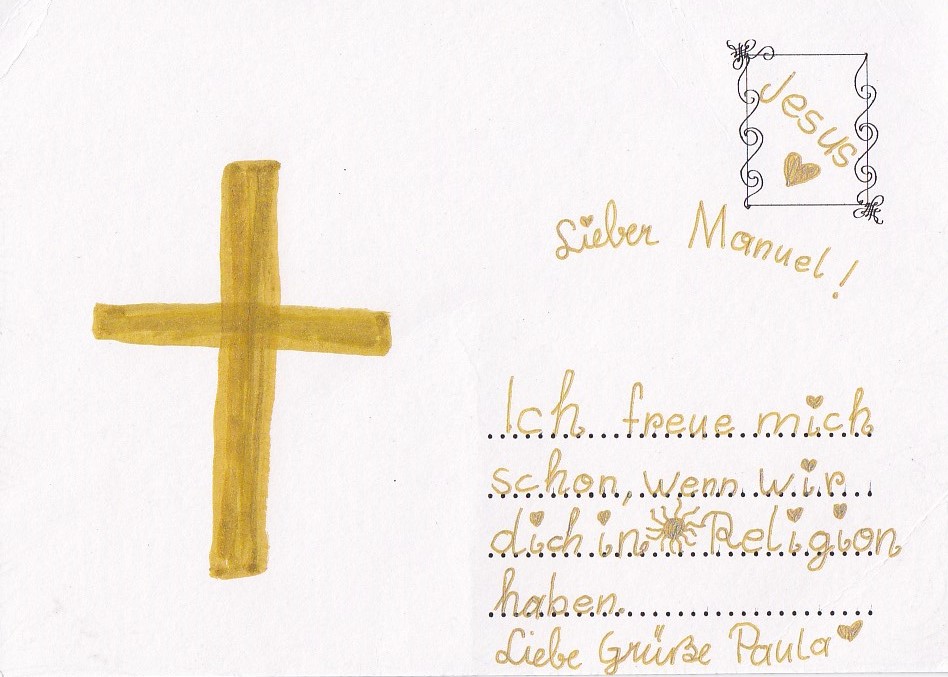 Jesus
Lieber Manuel!
Ich freue mich
schon, wenn wir
dich in Religion
haben.
Liebe Grüße Paula